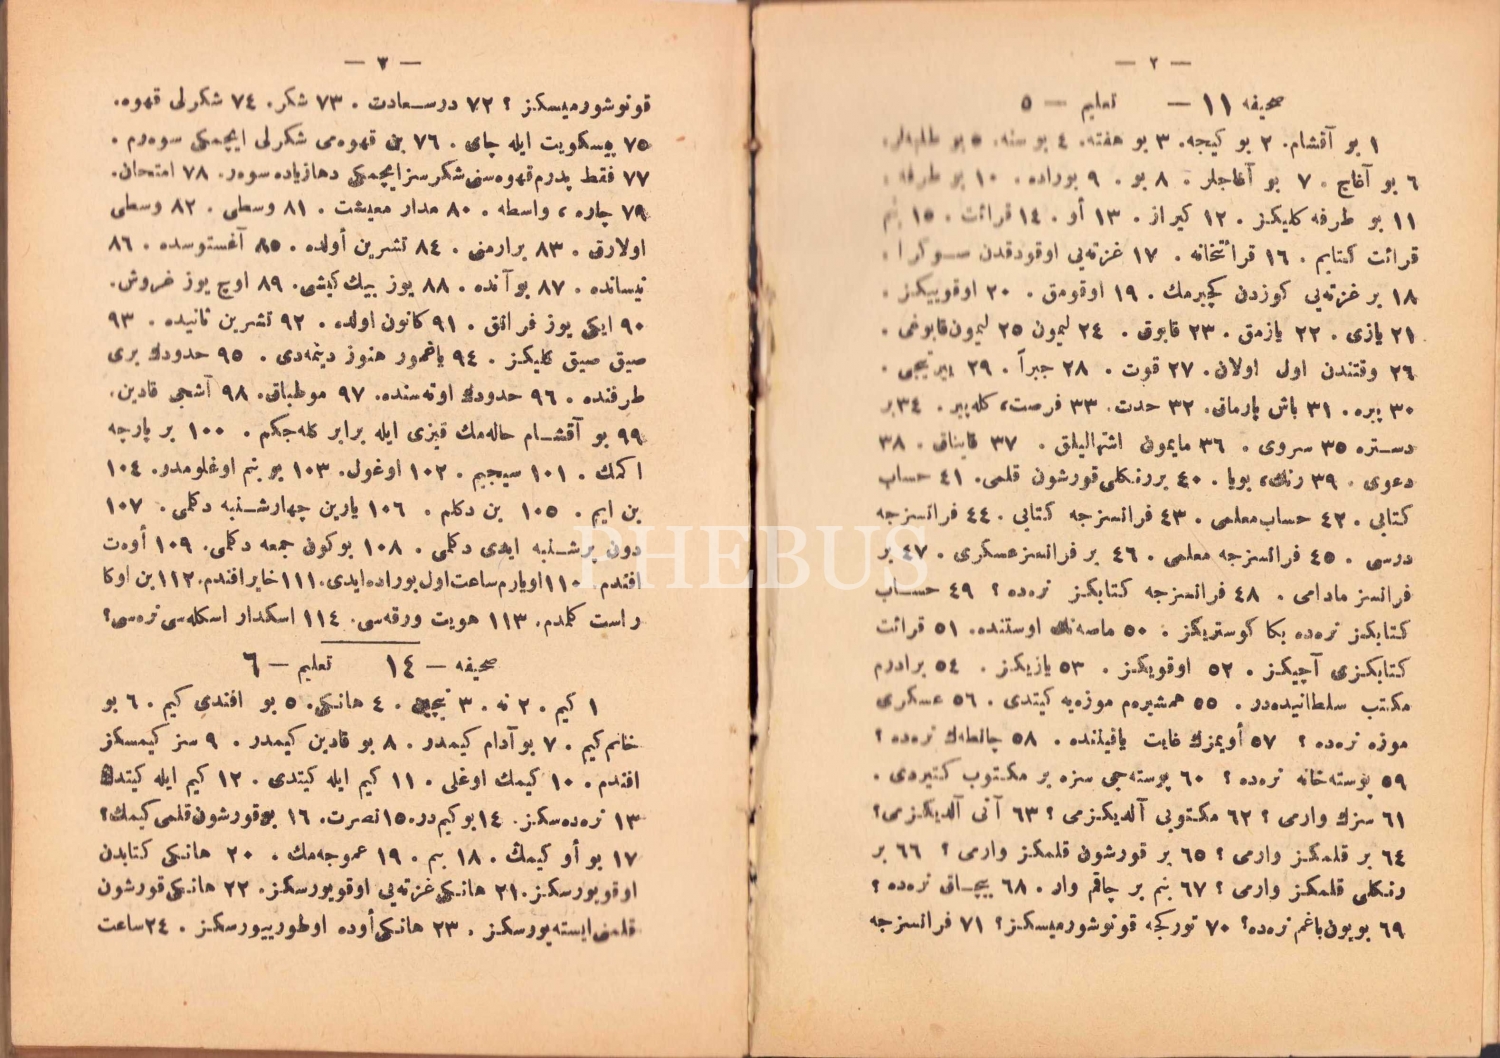 — ٢ —
صحيفه ١١ — تعليم — ٥
١ بو آقشام. ٢ بو كيجه. ٣ بو هفته. ٤ بو سنه. ٥ بو
٦ بو آغاج . ٧ بو آغاجلر . ٨ بو . ٩ بوراده . ١٠ بو طرفه .
١١ بو طرفه كليكز . ١٢ كيراز . ١٣ أو . ١٤ قرائت . ١٥ بنم
قرائت كتابم . ١٦ قرائتخانه . ١٧ غزته‌يى اوقودقدن سـوكرا .
١٨ بر غزته‌يى كوزدن كچيرمك . ١٩ اوقومق . ٢٠ اوقوييكز .
٢١ يازى . ٢٢ يازمق . ٢٣ قابوق . ٢٤ ليمون ٢٥ ليمون‌قابوغى .
٢٦ وقتندن اول اولان. ٢٧ قوت . ٢٨ جبراً . ٢٩ ييرتيجى .
٣٠ پيره . ٣١ باش پارماق. ٣٢ حدت. ٣٣ فرصت، كله‌پير. ٣٤ بر
دسـتره ٣٥ سروى . ٣٦ مايمون اشتهاليلق . ٣٧ قايناق . ٣٨
دعوى . ٣٩ رنك، بويا . ٤٠ بررنكلى‌قورشون قلمى. ٤١ حساب
كتابى . ٤٢ حساب‌معلمى . ٤٣ فرانسزجه كتابى . ٤٤ فرانسزجه
درسى . ٤٥ فرانسزجه معلمى . ٤٦ بر فرانسزعسكرى . ٤٧ بر
فرانسز مادامى . ٤٨ فرانسزجه كتابكز نره‌ده ؟ ٤٩ حساب
كتابكز نره‌ده بكا كوستريكز . ٥٠ ماصه‌نك اوستنده. ٥١ قرائت
كتابكزى آچيكز . ٥٢ اوقويكز . ٥٣ يازيكز . ٥٤ برادرم
مكتب سلطانيده‌در . ٥٥ همشيره‌م موزه‌يه كيتدى . ٥٦ عسكرى
موزه نره‌ده ؟ ٥٧ أويمزك غايت ياقيننده . ٥٨ چانطه‌ك نره‌ده ؟
٥٩ پوسته‌خانه نره‌ده ؟ ٦٠ پوسته‌جى سزه بر مكتوب كتيردى .
٦١ سزك وارمى ؟ ٦٢ مكتوبى آلديكزمى ؟ ٦٣ آنى آلديكزمى؟
٦٤ بر قلمكز وارمى ؟ ٦٥ بر قورشون قلمكز وارمى ؟ ٦٦ بر
رنكلى قلمكز وارمى ؟ ٦٧ بنم بر چاقم وار . ٦٨ بيچـاق نره‌ده ؟
٦٩ بويون‌باغم نره‌ده؟ ٧٠ توركجه قونوشورميسكز؟ ٧١ فرانسزجه
— ٣ —
قونوشورميسكز ؟ ٧٢ درسـعادت . ٧٣ شكر. ٧٤ شكرلى قهوه.
٧٥ بيسكويت ايله چاى . ٧٦ بن قهوه‌مى شكرلى ايچمكى سوه‌رم .
٧٧ فقط پدرم قهوه‌سنى شكرسز ايچمكى دها زياده سوه‌ر. ٧٨ امتحان.
٧٩ چاره ، واسطه . ٨٠ مدار معيشت . ٨١ وسطى . ٨٢ وسطى
اولارق . ٨٣ برارمنى . ٨٤ تشرين أولده . ٨٥ آغستوسده . ٨٦
نيسانده . ٨٧ بو آنده . ٨٨ يوز بيك كيشى. ٨٩ اوچ يوز غروش.
٩٠ ايكى يوز فرانق . ٩١ كانون اولده . ٩٢ تشرين ثانيده . ٩٣
صيق صيق كليكز . ٩٤ ياغمور هنوز دينمه‌دى . ٩٥ حدودك برى
طرفنده . ٩٦ حدودك اوته‌سنده. ٩٧ موطباق. ٩٨ آشجى قادين.
٩٩ بو آقشـام خاله‌مك قيزى ايله برابر كله‌جكم . ١٠٠ بر پارچه
اكمك . ١٠١ سيجيم . ١٠٢ اوغول. ١٠٣ بو بنم اوغلومدر. ١٠٤
بن ايم . ١٠٥ بن دكلم . ١٠٦ يارين چهارشـنبه دكلى . ١٠٧
دون پرشـنبه ايدى دكلى . ١٠٨ بوكون جمعه دكلى. ١٠٩ أوه‌ت
افندم. ١١٠ اويارم ساعت اول بوراده‌ايدى. ١١١ خاير افندم. ١١٢ بن اوكا
راست كلمدم. ١١٣ هويت ورقه‌سى. ١١٤ اسكدار اسكله‌سى نره‌سى؟
صحيفه — ١٤ تعليم — ٦
١ كيم . ٢ نه . ٣ نيچين . ٤ هانكى. ٥ بو افندى كيم . ٦ بو
خانم كيم . ٧ بو آدام كيمدر . ٨ بو قادين كيمدر . ٩ سز كيمسكز
افندم . ١٠ كيمك اوغلى . ١١ كيم ايله كيتدى . ١٢ كيم ايله كيتدك
١٣ نره‌ده‌سكز. ١٤ بوكيم در. ١٥ نصرت. ١٦ بو قورشون قلمى كيمك؟
١٧ بو أو كيمك . ١٨ بنم . ١٩ عموجه‌مك . ٢٠ هانكى كتابدن
اوقويورسكز. ٢١ هانكى غزته‌يى اوقويورسكز. ٢٢ هانكى قورشون
قلمنى ايسته‌يورسكز . ٢٣ هانكى أوده اوطورييورسكز . ٢٤ ساعت
PHEBUS